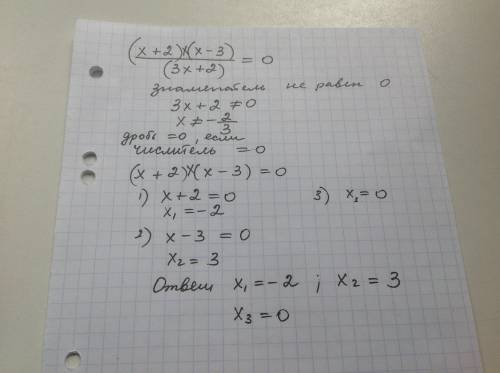 (x+2)x(x-3)
(3x+2) = 0
знаменатель не равен 0
3x+2 ≠0
x ≠ -2/3
дробь =0, если
числитель =0
(x+2)x(x-3)=0
1) x+2=0 3) x₃=0
x₁=-2
2) x-3 =0
x₂ = 3
Ответ x₁=-2 ; x₂ = 3
x₃ =0